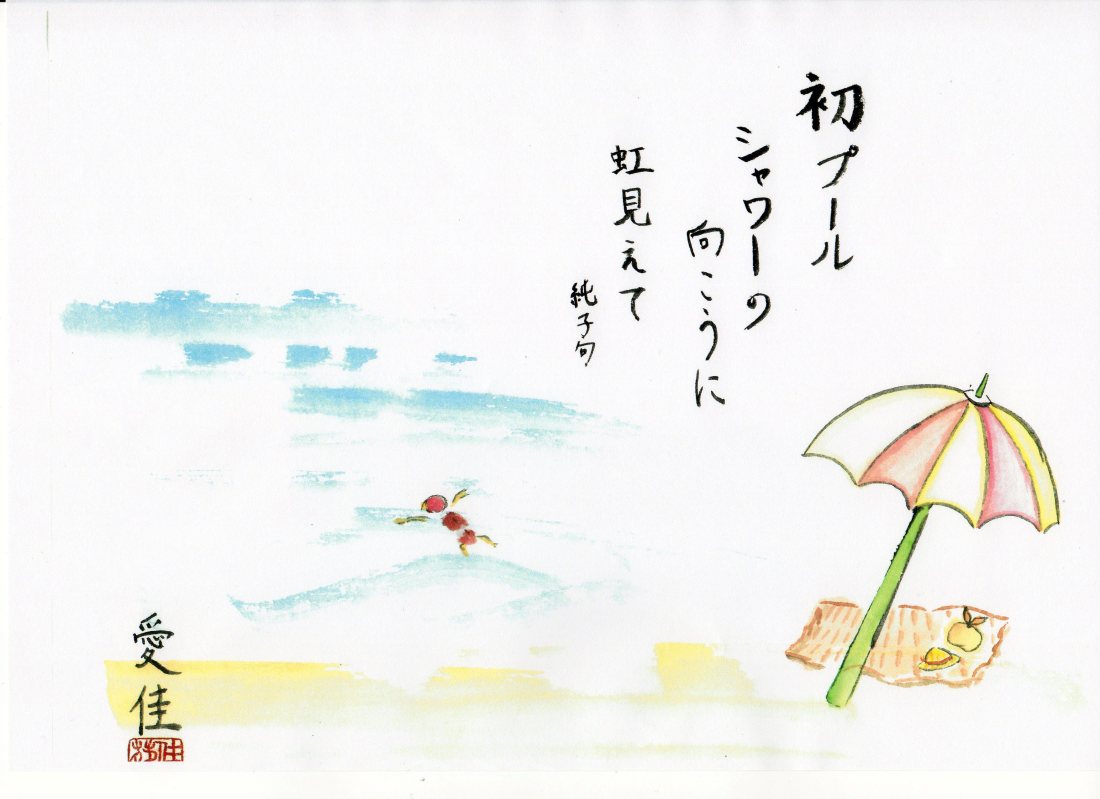 初プール
シャワーの
向こうに
虹見えて
純子句
愛佳